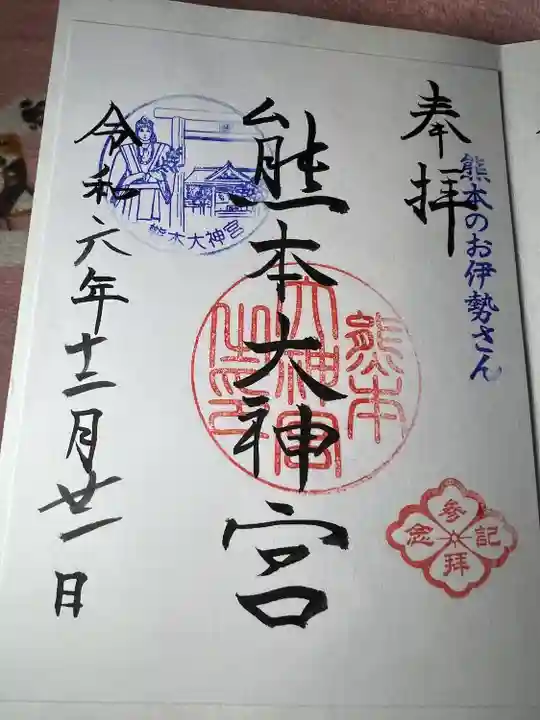 奉拝
熊本のお伊勢さん
参拝記念
熊本大神宮
熊本
大神宮
之印
熊本大神宮
令和六年十二月廿一日